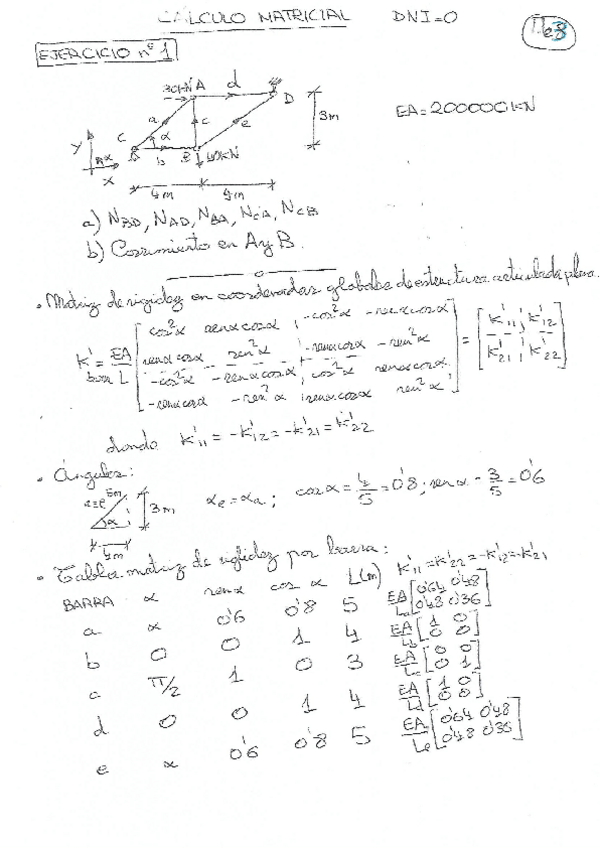 CÁLCULO MATRICIAL DNI=0
EJERCICIO nº 1
30KN A d D
EA=200000KN
a c e 3m
C α b B 40KN
Y X
4m 4m
a) N_BD, N_AD, N_BA, N_CA, N_CB
b) Corrimiento en A y B.
• Matriz de rigidez en coordenadas globales de estructura articulada plana.
K' = EA/L [cos²α senαcosα -cos²α -senαcosα; senαcosα sen²α -senαcosα -sen²α; -cos²α -senαcosα cos²α senαcosα; -senαcosα -sen²α senαcosα sen²α] = [K'11 K'12; K'21 K'22]
barra
donde K'11 = -K'12 = -K'21 = K'22
• Ángulos:
5m 3m α 4m
αe = αa; cosα = 4/5 = 0'8; senα = 3/5 = 0'6
• Tabla matriz de rigidez por barra:
BARRA α senα cosα L(m) K'11 = K'22 = -K'12 = -K'21
a α 0'6 0'8 5 EA/La [0'64 0'48; 0'48 0'36]
b 0 0 1 4 EA/Lb [1 0; 0 0]
c π/2 1 0 3 EA/Lc [0 0; 0 1]
d 0 0 1 4 EA/Ld [1 0; 0 0]
e α 0'6 0'8 5 EA/Le [0'64 0'48; 0'48 0'36]